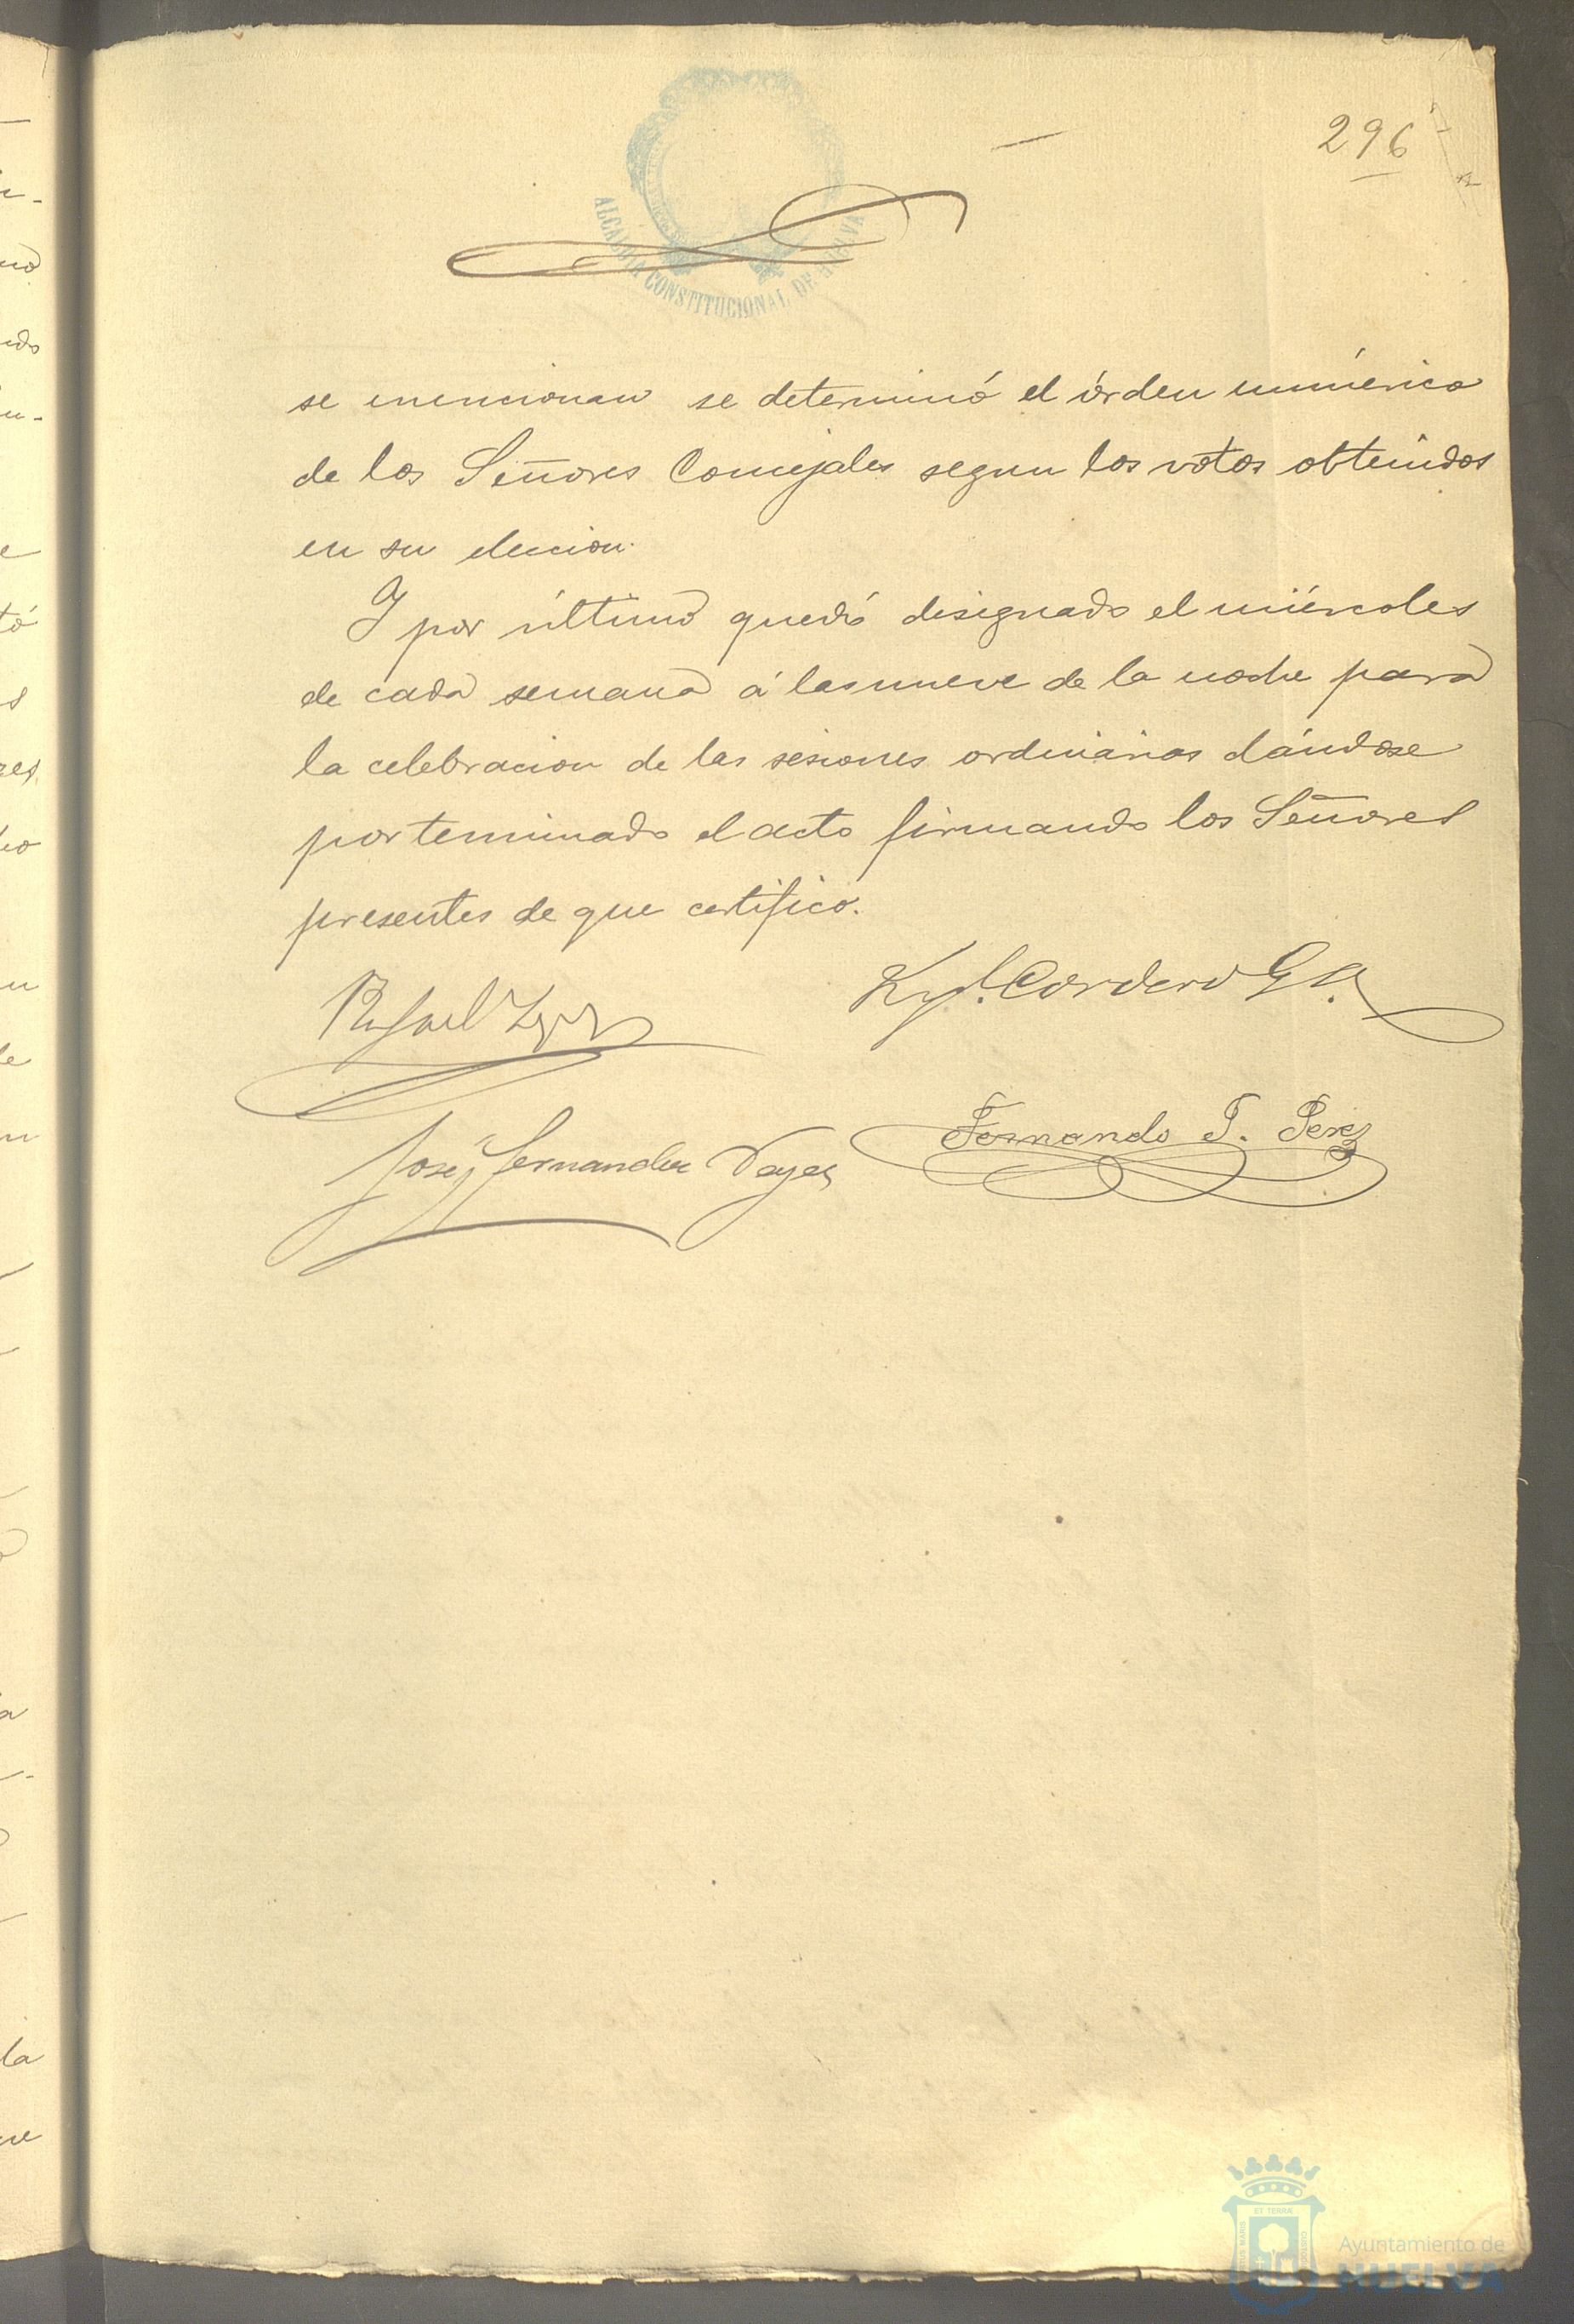 296
ALCALDIA CONSTITUCIONAL DE HUELVA
se mencionan se determinó el órden numérico
de los Señores Concejales segun los votos obtenidos
en su eleccion.
Y por último quedó designado el miércoles
de cada semana á las nueve de la noche para
la celebracion de las sesiones ordinarias dándose
por terminado el acto firmando los Señores
presentes de que certifico.
Rafael
Cordero
Jose Fernandez
Fernando T. Perez
Ayuntamiento de
HUELVA